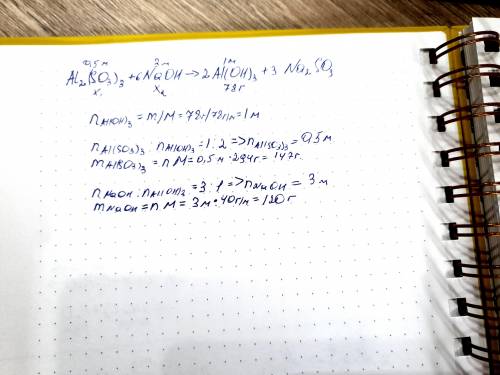 0,5 м 3 м 1 м
Al₂(SO₃)₃ + 6NaOH → 2Al(OH)₃ + 3 Na₂SO₃
x₁ x₂ 78 г
n Al(OH)₃ = m/M = 78г/78г/м = 1 м
n Al(SO₃)₃ : n Al(OH)₃ = 1 : 2 => n Al(SO₃)₃ = 0,5 м
m Al(SO₃)₃ = n·M = 0,5 м · 294г = 147г
n NaOH : n Al(OH)₃ = 3 : 1 => n NaOH = 3 м
m NaOH = n·M = 3 м · 40г/м = 120 г